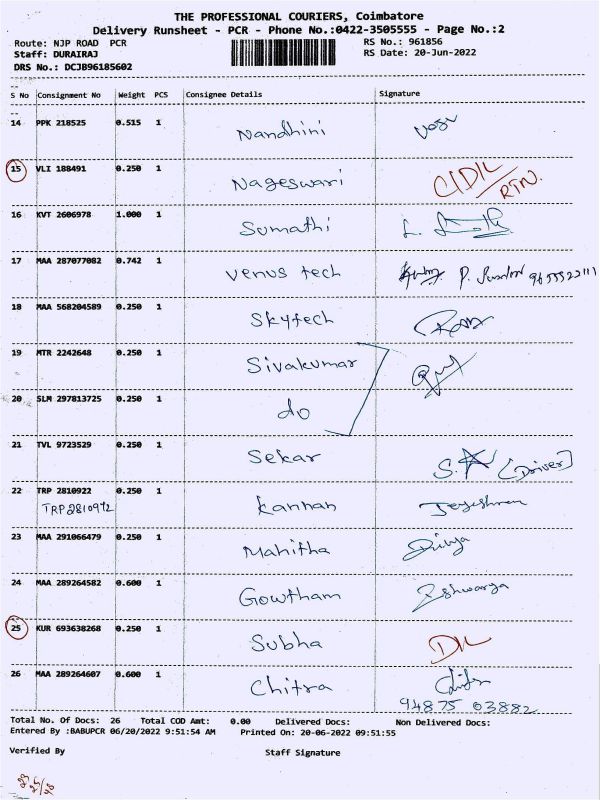 THE PROFESSIONAL COURIERS, Coimbatore
Delivery Runsheet - PCR - Phone No.:0422-3505555 - Page No.:2
Route: NJP ROAD PCR RS No.: 961856
Staff: DURAIRAJ RS Date: 20-Jun-2022
DRS No.: DCJB96185602
S No Consignment No Weight PCS Consignee Details Signature
14 PPK 218525 0.515 1 Nandhini
15 VLI 188491 0.250 1 Nageswari RTN.
16 KVT 2606978 1.000 1 Sumathi
17 MAA 287077082 0.742 1 Venus tech
18 MAA 568204589 0.250 1 Skytech
19 MTR 2242648 0.250 1 Sivakumar
20 SLM 297813725 0.250 1 do
21 TVL 9723529 0.250 1 Sekar [Driver]
22 TRP 2810922 0.250 1 Kannan
TRP 2810972
23 MAA 291066479 0.250 1 Mahitha Divya
24 MAA 289264582 0.600 1 Gowtham
25 KUR 693638268 0.250 1 Subha
26 MAA 289264607 0.600 1 Chitra
94875 03882
Total No. Of Docs: 26 Total COD Amt: 0.00 Delivered Docs: Non Delivered Docs:
Entered By :BABUPCR 06/20/2022 9:51:54 AM Printed On: 20-06-2022 09:51:55
Verified By Staff Signature